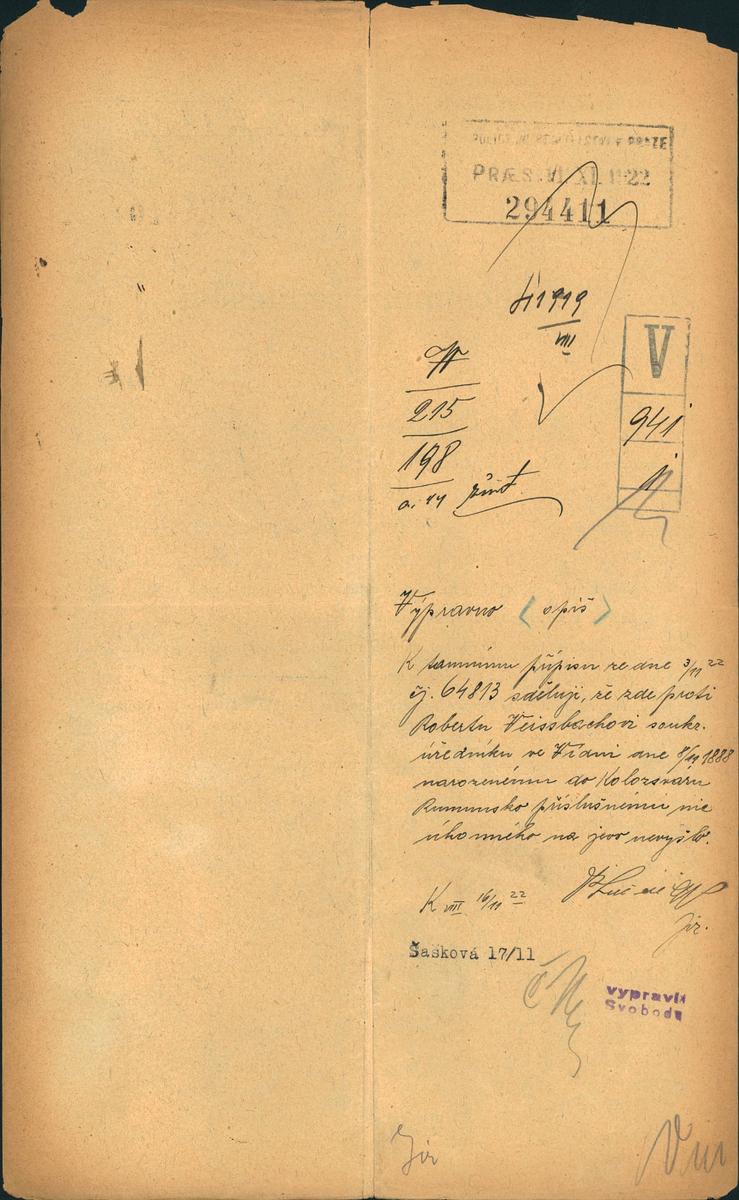 PRAZE
PRÆS. VI. XI. 1922
294411
1919
VIII
V
215
941
198
Výpravno
opiš
K tamnímu přípisu ze dne 3/11 22
čj. 64813 sděluji, že zde proti
Robertu Weissbachovi soukr.
úředníku ve Vídni dne 8/11 1888
narozenému do Kolozsvaru
Rumunsko příslušnému nic
úhonného na jevo nevyšlo.
K VIII 16/11 22
Šašková 17/11
vypravil
Svoboda